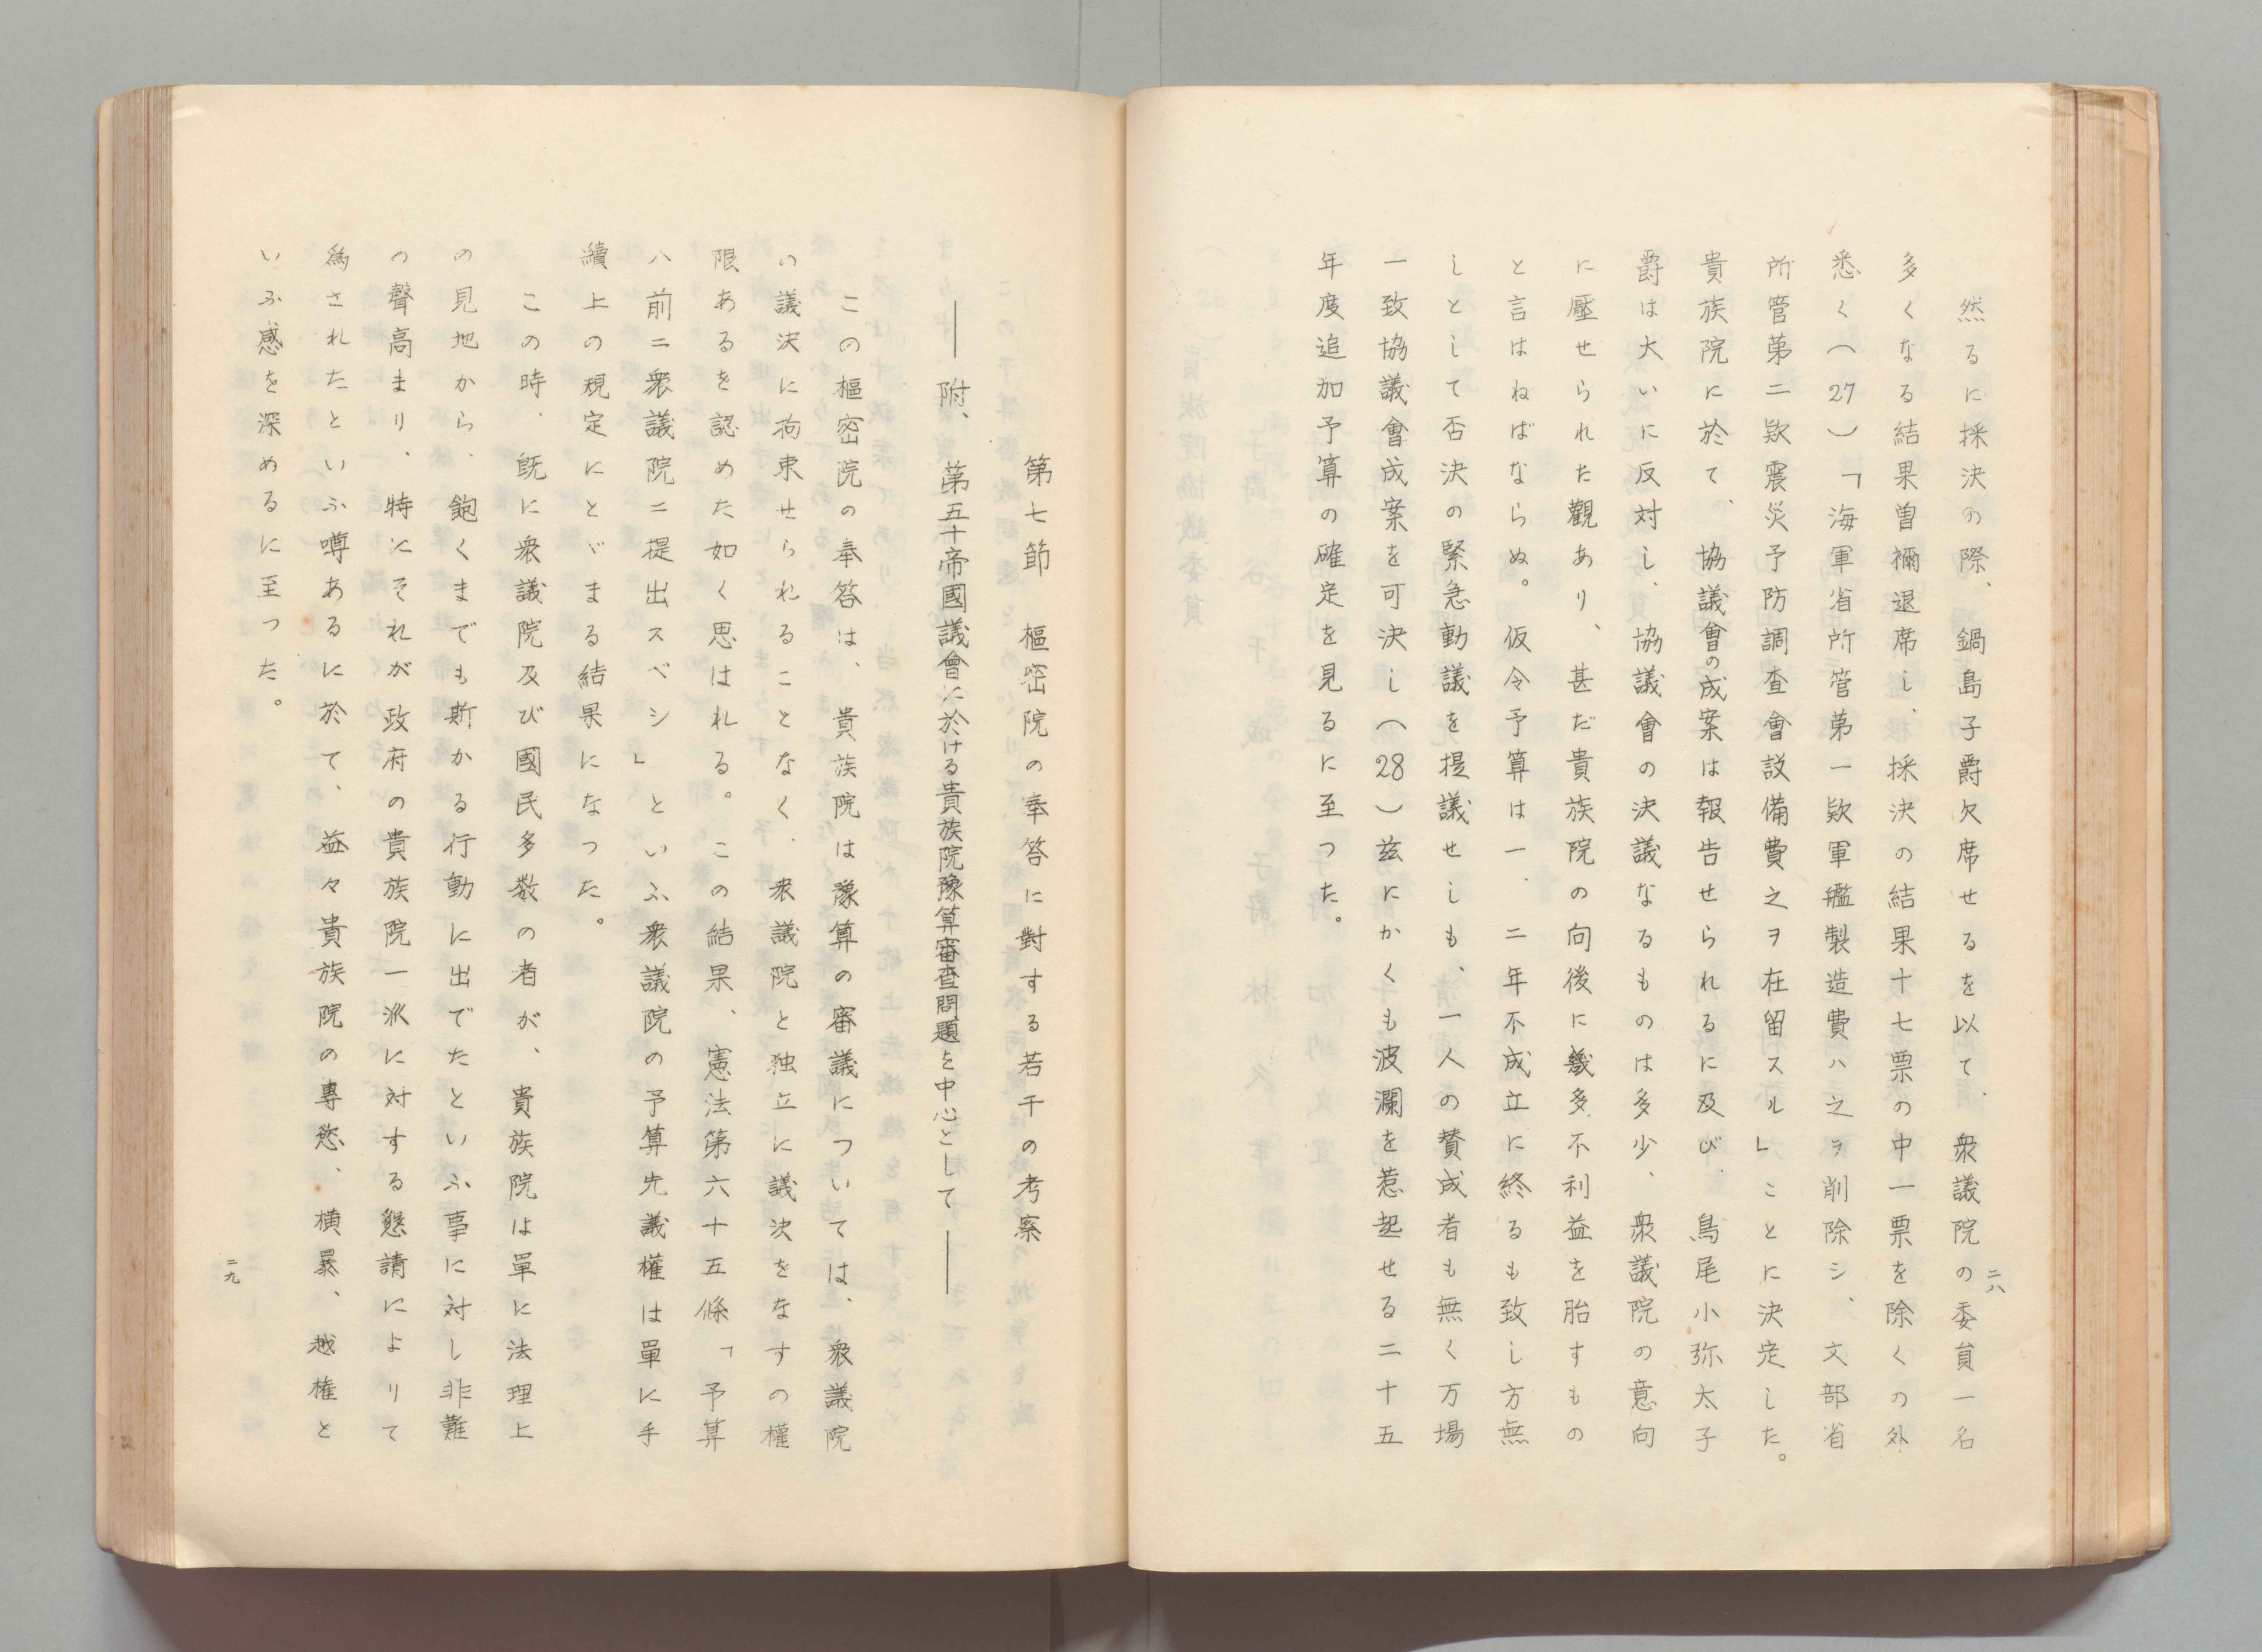 然るに採決の際、鍋島子爵欠席せるを以て、衆議院の委員一名
多くなる結果曽禰退席し、採決の結果十七票の中一票を除くの外
悉く（27）「海軍省所管第一欵軍艦製造費ハ之ヲ削除シ、文部省
所管第二欵震災予防調査會設備費之ヲ在留スル」ことに決定した。
貴族院に於て、協議會の成案は報告せられるに及び、鳥尾小弥太子
爵は大いに反対し、協議會の決議なるものは多少、衆議院の意向
に壓せられた觀あり、甚だ貴族院の向後に幾多不利益を胎すもの
と言はねばならぬ。仮令予算は一、二年不成立に終るも致し方無
しとして否決の緊急動議を提議せしも、一人の賛成者も無く万場
一致協議會成案を可決し（28）茲にかくも波瀾を惹起せる二十五
年度追加予算の確定を見るに至つた。
二八
第七節　樞密院の奉答に對する若干の考察
――附、第五十帝國議會に於ける貴族院豫算審査問題を中心として――
この樞密院の奉答は、貴族院は豫算の審議については、衆議院
の議決に拘束せられることなく、衆議院と独立に議決をなすの權
限あるを認めた如く思はれる。この結果、憲法第六十五條「予算
ハ前ニ衆議院ニ提出スベシ」といふ衆議院の予算先議權は單に手
續上の規定にとゞまる結果になつた。
この時、既に衆議院及び國民多数の者が、貴族院は單に法理上
の見地から、飽くまでも斯かる行動に出でたといふ事に対し非難
の聲高まり、特にそれが政府の貴族院一派に対する懇請によりて
為されたといふ噂あるに於て、益々貴族院の專慾、横暴、越権と
いふ感を深めるに至つた。
二九